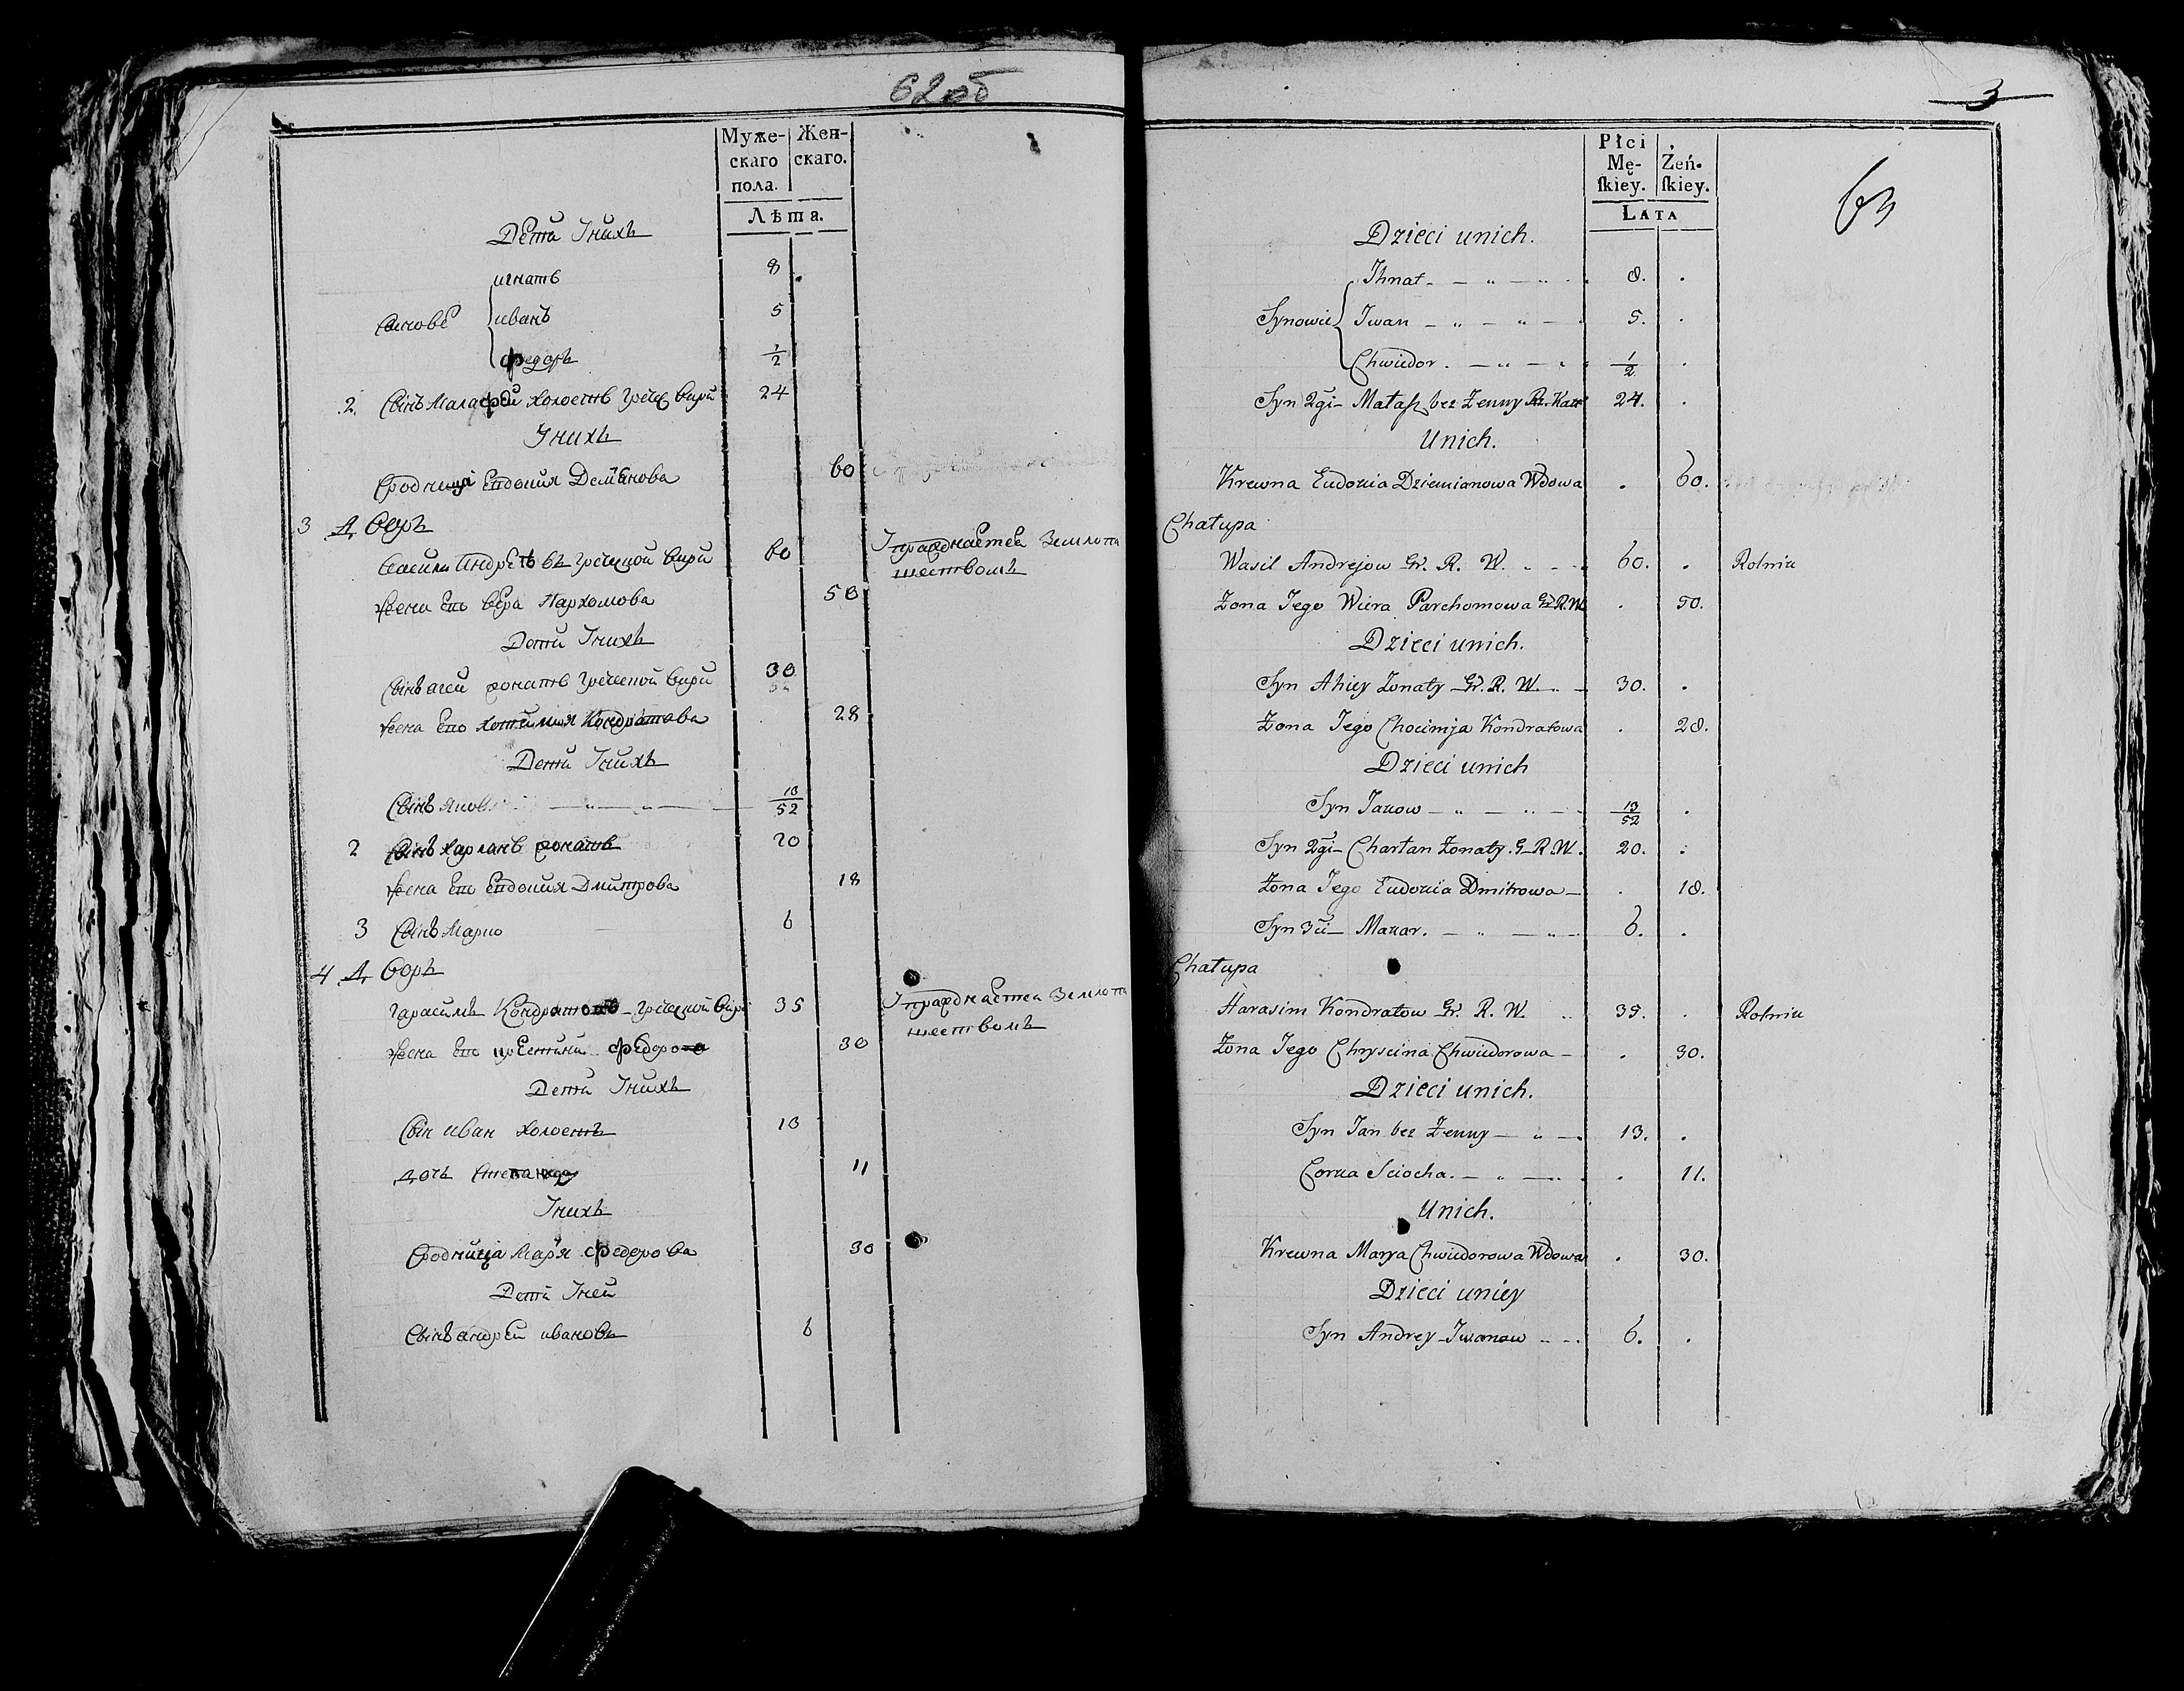 62 об
Муже-
скаго
пола.
Жен-
скаго.
Лѣта.
Дети Унихъ
игнатъ 8
Сынове иванъ 5
федоръ 1/2
2. Сынъ Малафей холостъ греч вѣри 24
Унихъ
Сродница Евдокия Демянова 60
3 Дворъ
василь Андреевъ греческой вѣри 60 Упражнается Землепа
шествомъ
жена его вера Пархомова 50
Дети Унихъ
Сынъ агей женатъ греческой вѣри 30
жена его хотимия Кондратова 28
Дети Унихъ
Сынъ яков 13/52
2 Сынъ харланъ женатъ 20
жена его Евдокия Дмитрова 18
3 Сынъ 6
4 Дворъ
гарасимъ Кондратовъ греческой вѣри 35 Упражнается Землепа
шествомъ
жена его федорова 30
Дети Унихъ
Сын иван холостъ 13
дочь 11
Унихъ
Сродница Марья федорова 30
Дети Уней
Сынъ андрей ивановъ 6
3
63
Płci
Mę-
ſkiey.
Żeń-
ſkiey.
Lata
Dzieci unich.
Ihnat 8.
Synowie Iwan 5.
Chwiedor. 1/2
Syn 2gi Małafiey bez Żenny 24.
Unich.
Krewna Eudokia Dziemianowa Wdowa 60.
Chałupa
Wasil Andrejow Gr. R. W. 60. Rolnik
Żona Jego Wiera Parchomowa Gr. R. W. 50.
Dzieci unich.
Syn Ahiey Żonaty Gr. R. W. 30.
Żona Jego Chocimja Kondratowa 28.
Dzieci unich
Syn Jakow 13/52
Syn 2gi Charłan Żonaty. G. R. W. 20.
Żona Jego Eudokia Dmitrowa 18.
Syn 3ci Makar. 6.
Chałupa
Harasim Kondratow Gr. R. W. 35. Rolnik
Żona Jego Chryscina Chwiedorowa 30.
Dzieci unich.
Syn Jan bez Żenny 13.
Corka Sciocha. 11.
Unich.
Krewna Marya Chwiedorowa Wdowa 30.
Dzieci uniey
Syn Andrey Iwanow 6.